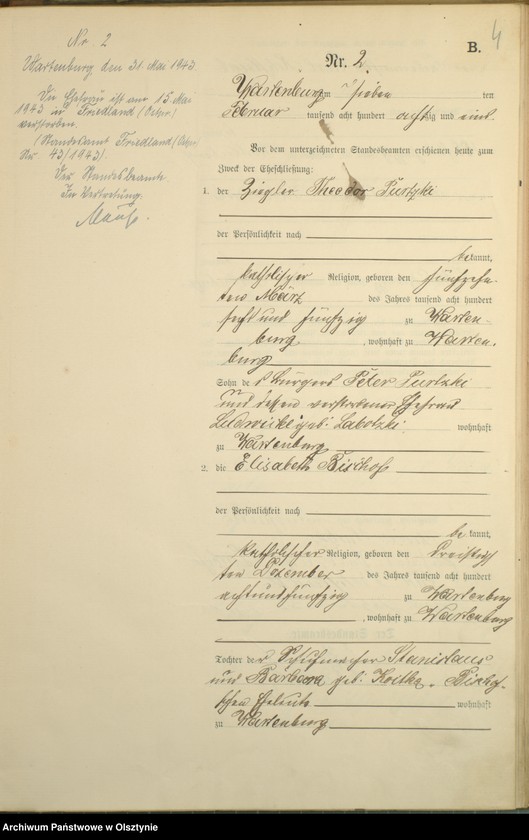 4
B.
Nr. 2
Wartenburg den 31. Mai 1943
Die Ehefrau ist am 15. Mai
1943 in Friedland/Ostpr/
verstorben.
/Standesamt Friedland/Ostpr
Nr 43/1943/.
Der Standesbeamte
In Vertretung.
Nr. 2.
Wartenburg am sieben ten
Februar tausend acht hundert achtzig und eins.
Vor dem unterzeichneten Standesbeamten erschienen heute zum
Zweck der Eheschließung:
1. der Ziegler Theodor Purtzki
der Persönlichkeit nach
bekannt,
katholischer Religion, geboren den fünfzehn-
ten März des Jahres tausend acht hundert
sechs und fünfzig zu Warten-
burg, wohnhaft zu Warten-
burg
Sohn des Bürgers Peter Purtzki
und dessen verstorbenen Ehefrau
geb. Labotzki wohnhaft
zu Wartenburg
2. die Elisabeth Bischof
der Persönlichkeit nach
bekannt,
katholischer Religion, geboren den dreißig
ten Dezember des Jahres tausend acht hundert
achtundfünfzig zu Wartenburg
, wohnhaft zu Wartenburg
Tochter der Schuhmacher Stanislaus
und Barbara geb. Bischof-
schen Eheleute wohnhaft
zu Wartenburg
Archiwum Państwowe w Olsztynie